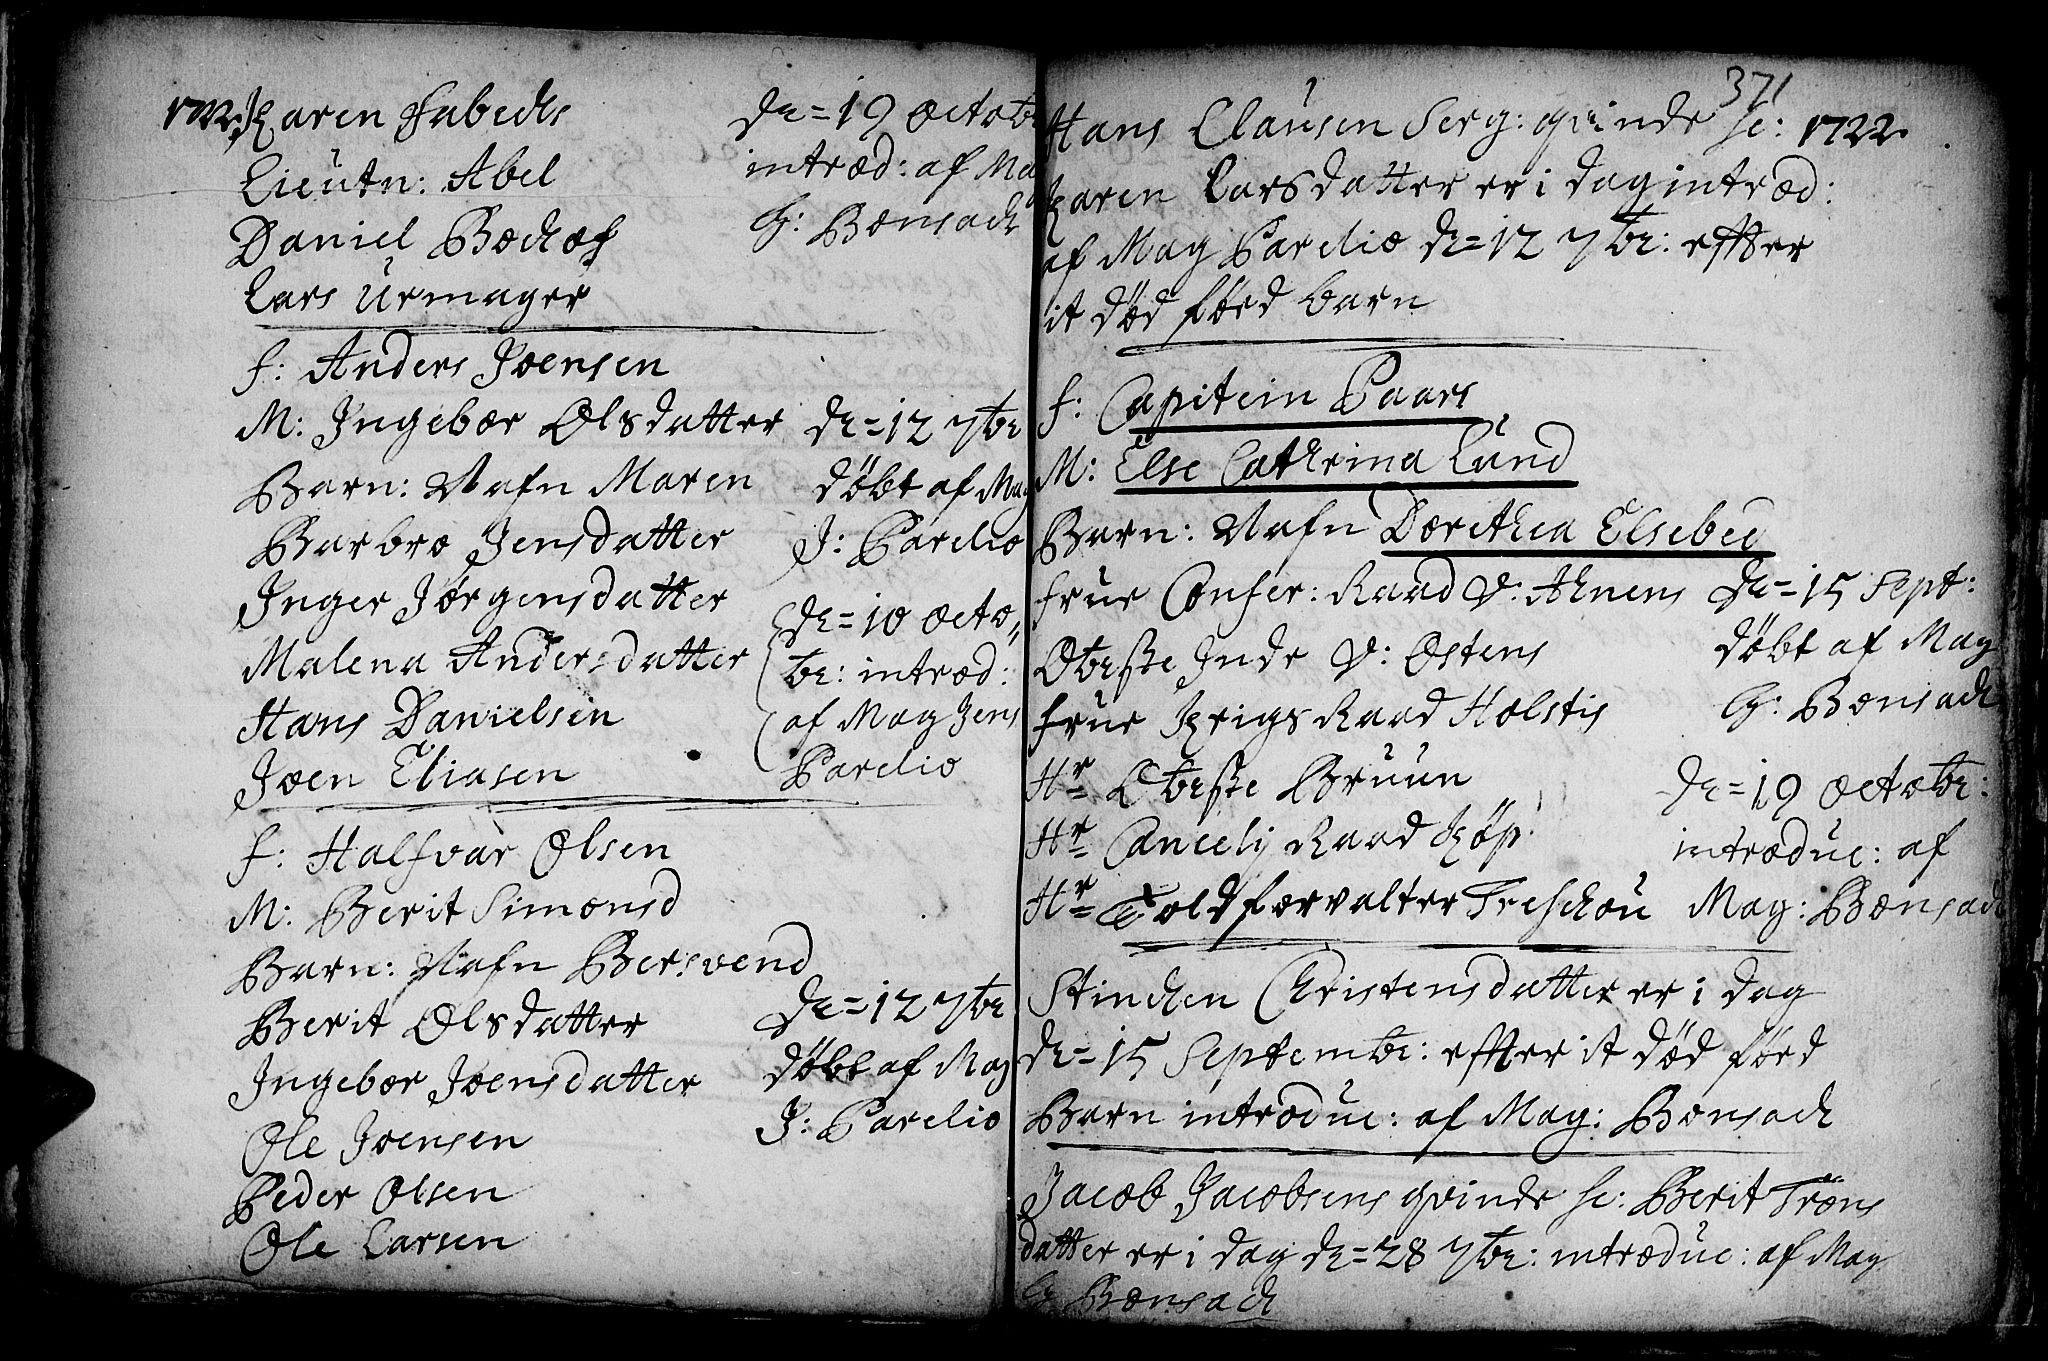 1722. Karen Fabeds
Lieutn: Abel
Daniel Bodiof
Lars Urmager
d= 19 octobr
introd: af Ma
G: Bonsach
f: Anders Joensen
M: Ingebor Olsdatter
Barn: Nafn Maren
Barbro Jensdatter
Inger Jørgensdatter
Malena Andersdatter
Hans Danielsen
Joen Eliasen
d= 12 7br
døbt af Mag
J: Parelio
d= 10 octo
br: introd:
af Mag Jens
Parelio
f: Halfvar Olsen
M: Berit Simonsd
Barn: Nafn Bersvend
Berit Olsdatter
Ingebor Joensdatter
Ole Joensen
Peder Olsen
Ole Larsen
d= 12 7br
døbt af Mag
J: Parelio
371
Hans Clausen Serg: qvinde sc: 1722.
Karen Larsdatter er i dag introd:
af Mag Parelio d= 12 7br: effter
it død førd barn
f: Capitein Paars
M: Else Cathrina Lund
Barn: Nafn Dorithea Elsebed
frue Confer: Raad V: Ahnens
Obrste Inde V: Ostens
frue Krigs Raad Holstis
Hr Obrste Bruun
Hr Cancelij Raad Køp:
Hr Toldforvalter Treschou
d= 15 Sept:
døbt af Mag
G: Bonsach
d= 19 octobr:
introduc: af
Mag: Bonsach
Stinchen Christensdatter er i dag
d= 15 Septembr: effter it død førd
Barn introduc: af Mag: Bonsach
Jacob Jacobsens qvinde sc: Berit Trøns
datter er i dag d= 28 7br: introduc: af Mag
G Bonsach